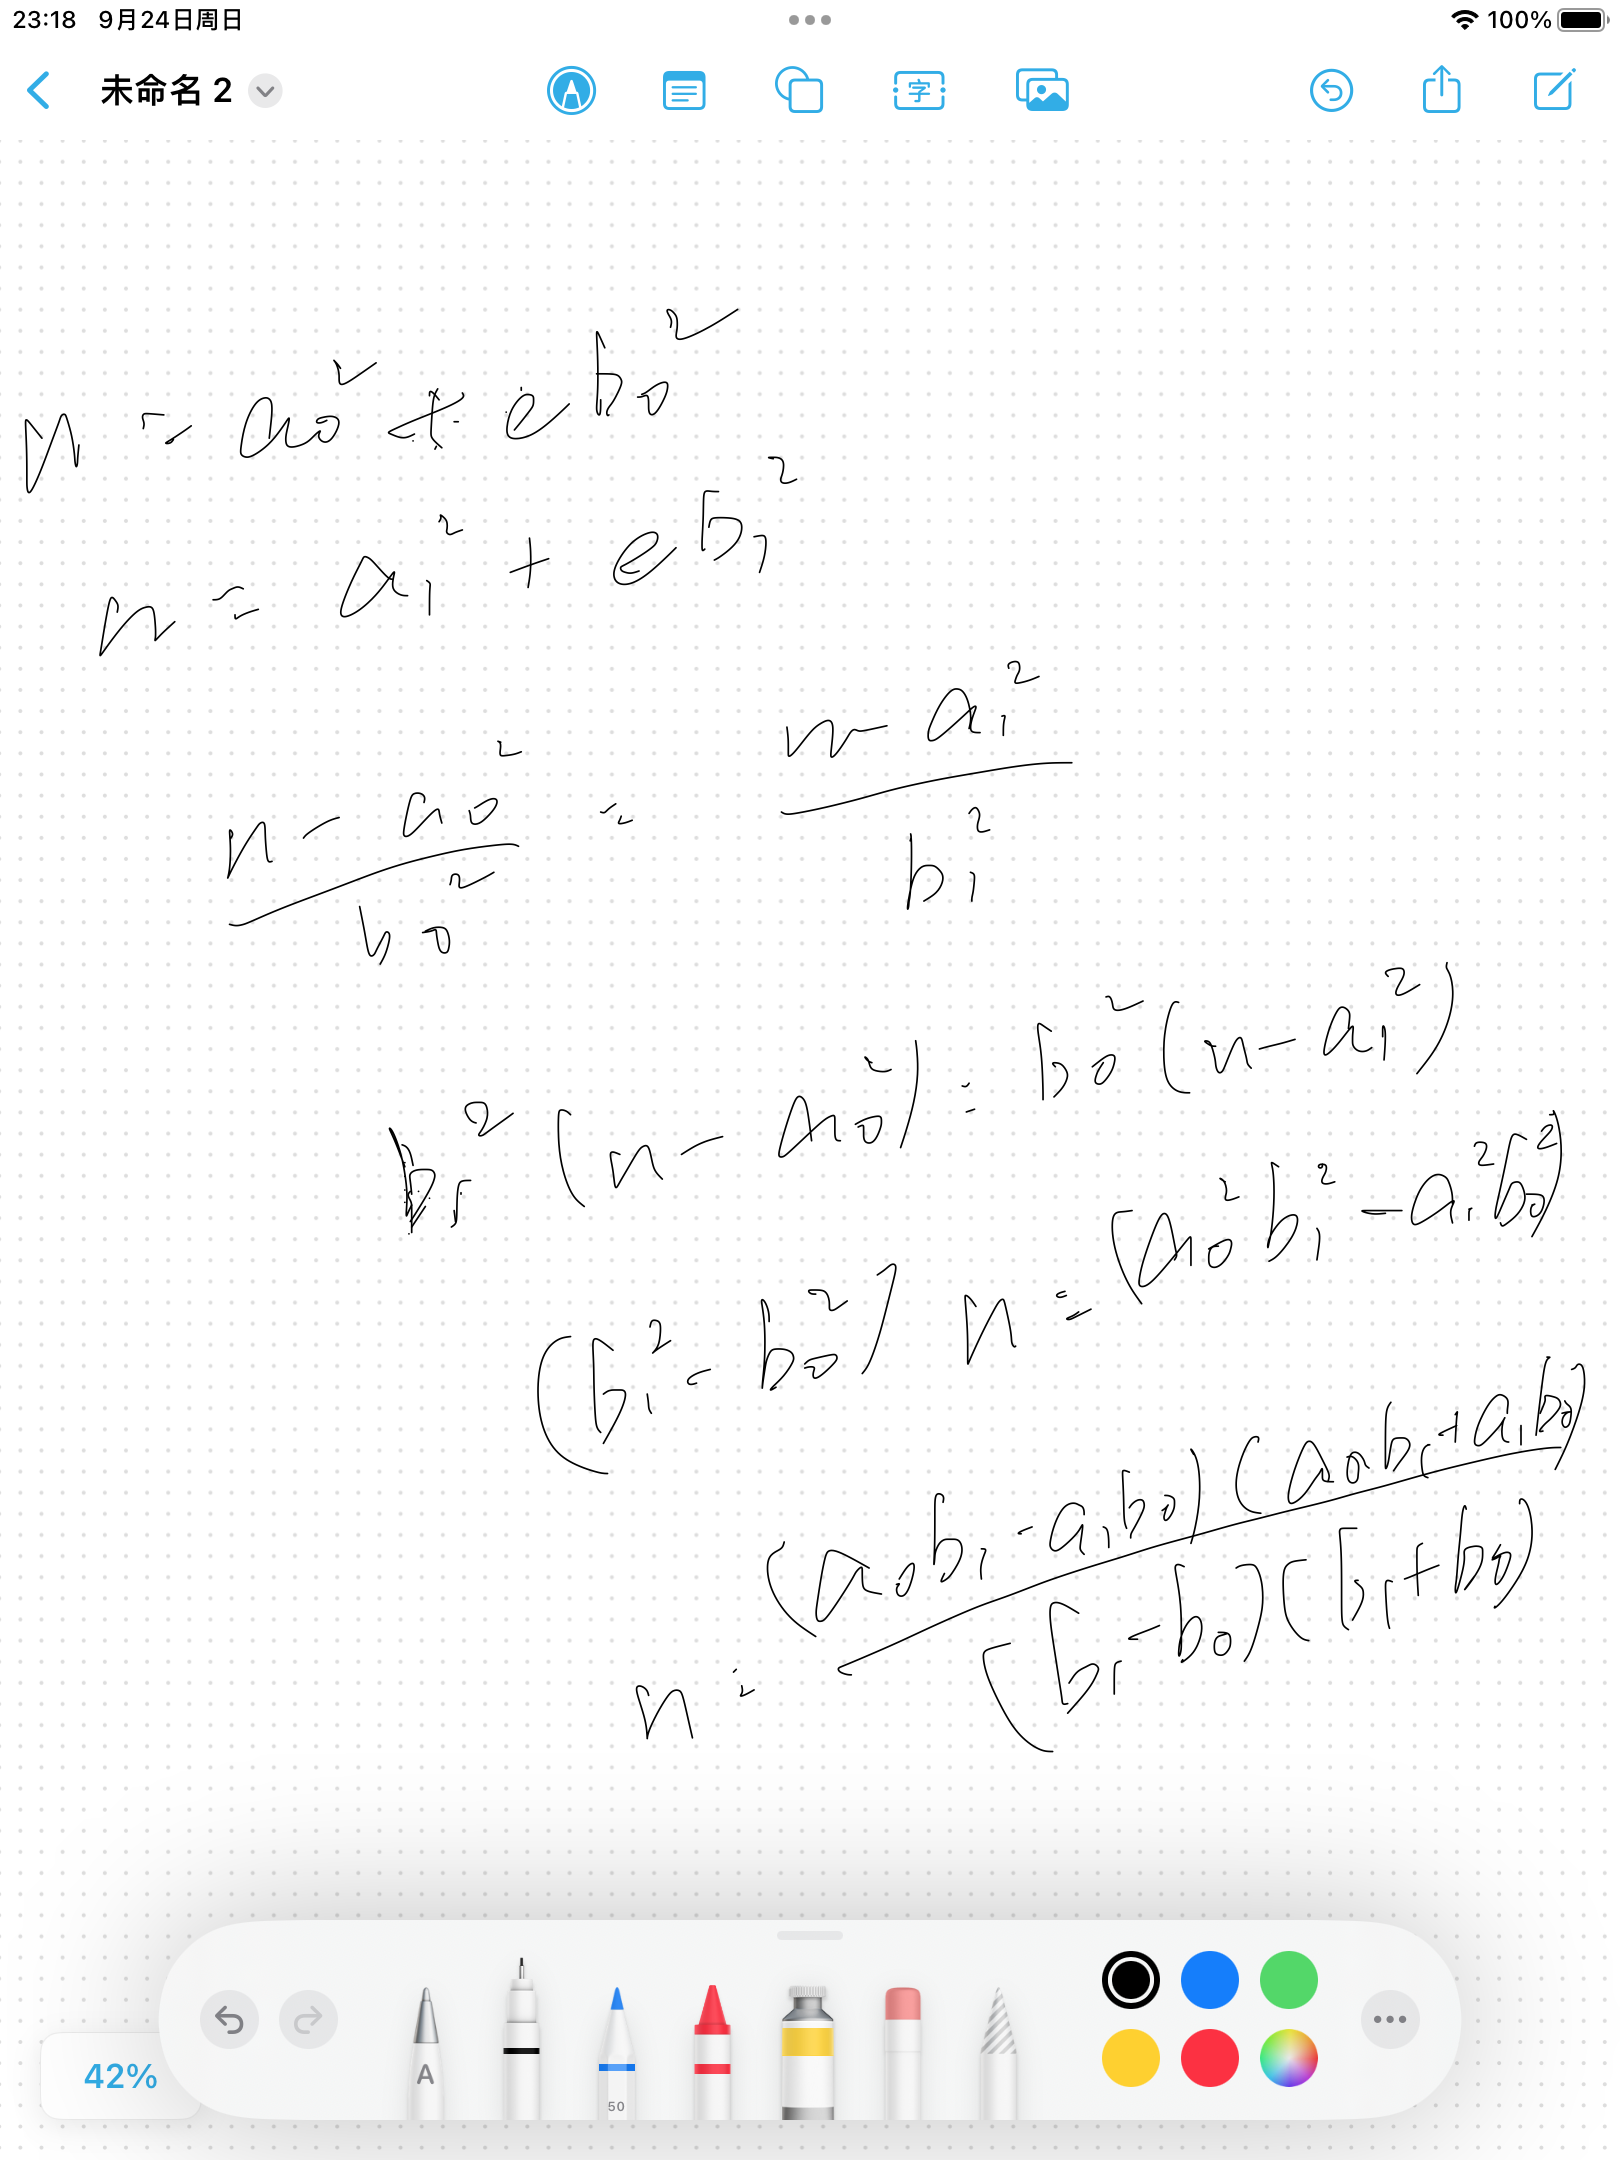 23:18 9月24日周日 100%
未命名 2 字
n = a₀² + e b₀²
n = a₁² + e b₁²
(n - a₀²)/b₀² = (n - a₁²)/b₁²
b₁² (n - a₀²) = b₀² (n - a₁²)
(b₁² - b₀²) n = (a₀² b₁² - a₁² b₀²)
n = (a₀b₁ - a₁b₀)(a₀b₁ + a₁b₀)/(b₁ - b₀)(b₁ + b₀)
A 50
42%